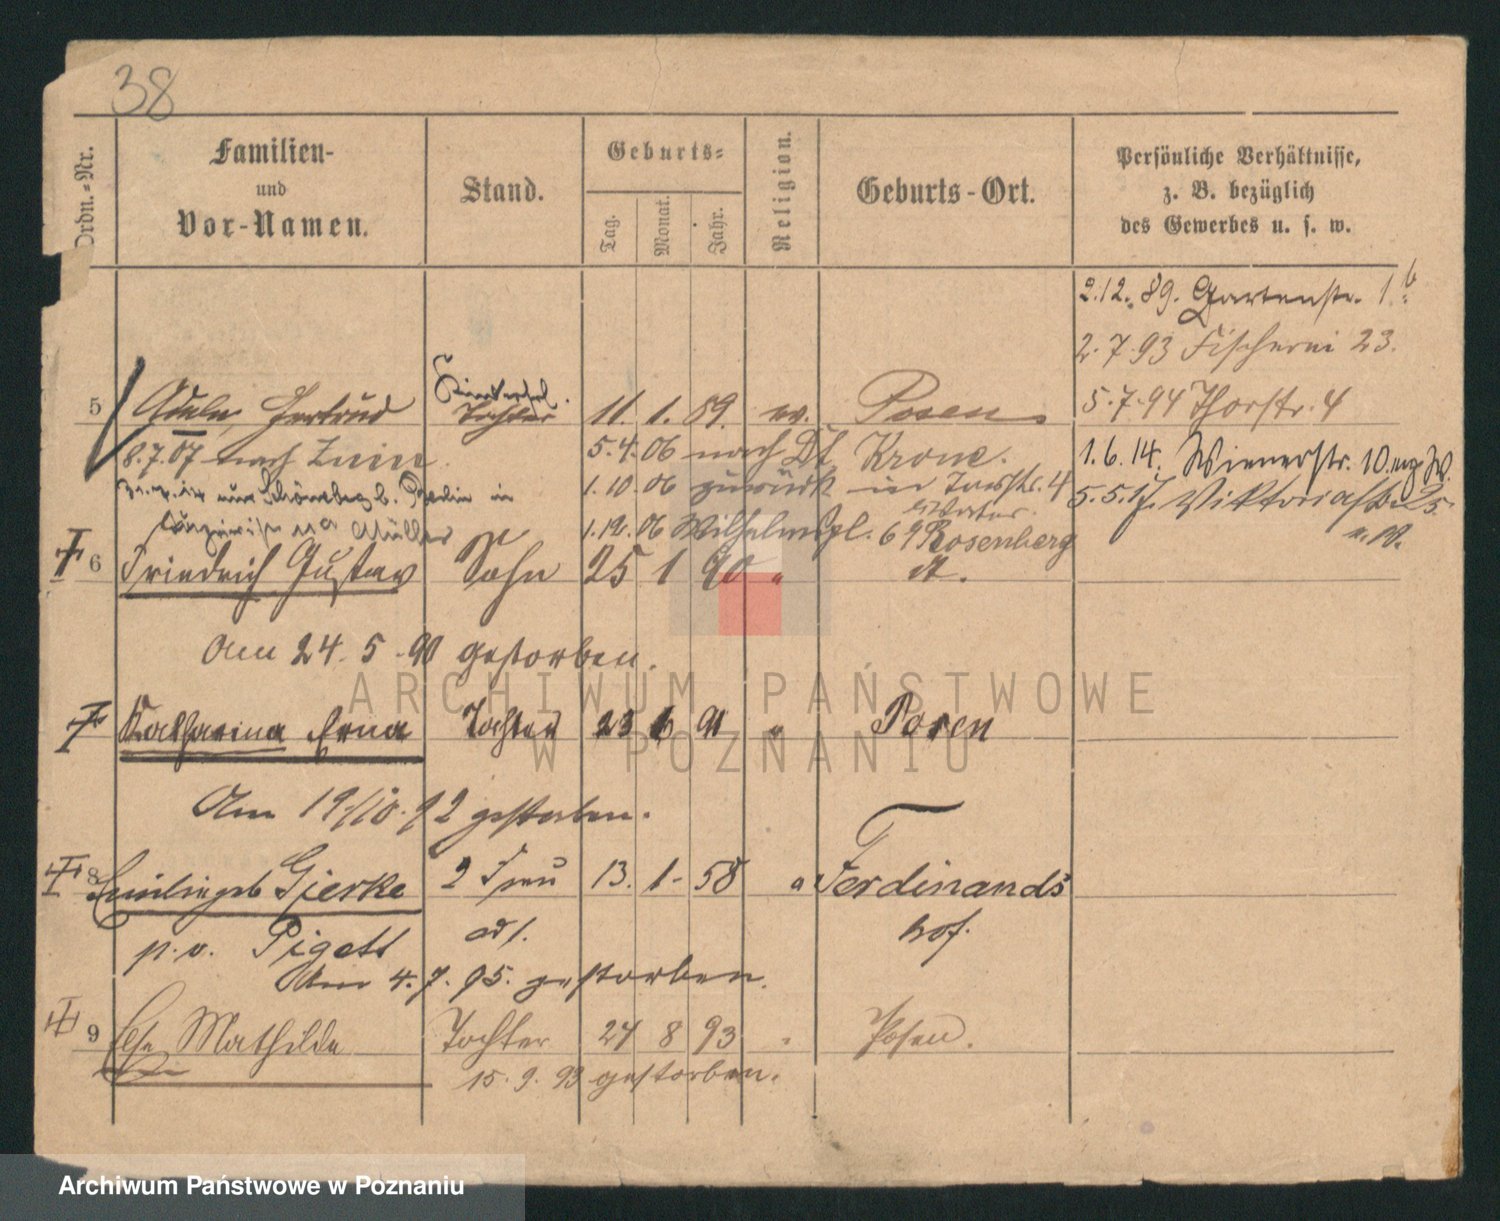 38
Ordn.-Nr.
Familien-
und
Vor-Namen.
Stand.
Geburts-
Tag.
Monat.
Jahr.
Religion.
Geburts-Ort.
Persönliche Verhältnisse,
z. B. bezüglich
des Gewerbes u. s. w.
2.12.89. Gartenstr. 1b
2.7.93 Fischerei 23.
5.7.94 Thorstr. 4
1.6.14. Wienerstr. 10
5.5.17. Viktoriastr. 25
5 Gertrud Tochter 11. 1. 89. ev. Posen
8.7.07 nach Znin
5.4.06 nach Dt Krone.
1.10.06 zurück
1.12.06 Wilhelmspl. 6 Rosenberg
6 Friedrich Gustav Sohn 25 1 90 " dt.
Am 24.5.90 gestorben.
7 Katharina Erna Tochter 23 6 91 " Posen
Am 19/10.92 gestorben.
8 Emilie geb Gierke 2 Frau 13. 1. 58 " Ferdinands
hof.
p. v. Pigett
Am 4.7.95. gestorben.
9 Mathilde Tochter 24 8 93 " Posen.
15.9.93 gestorben.
ARCHIWUM PAŃSTWOWE
W POZNANIU
Archiwum Państwowe w Poznaniu